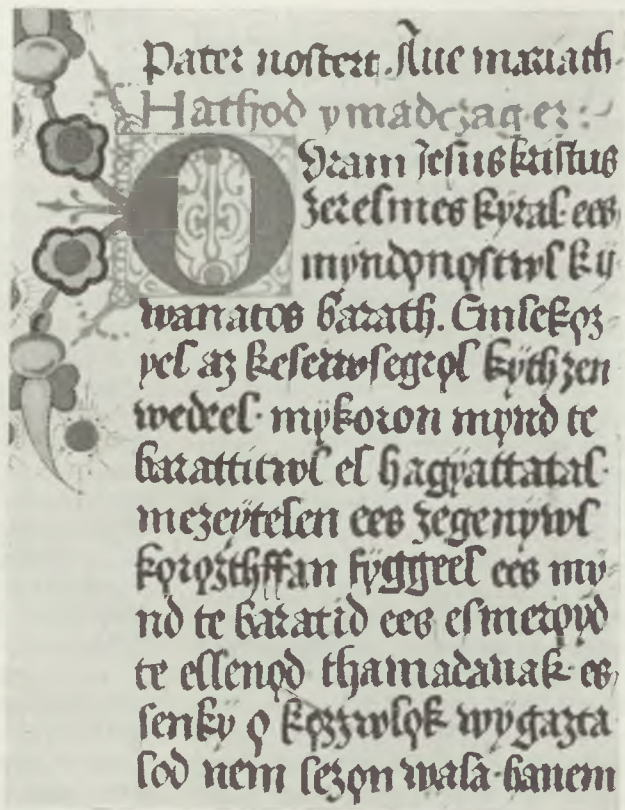 Pater noster. Aue mariath
Hathod ymadczag. ez
Oram Jesus kristus
zerelmes kyral. ees
myndonostwl ky
wanatos barath. Emlekoz
yel az keserwsegrol kyth zen
wedeel. mykoron mynd te
barattitwl el hagyattatal.
mezeytelen ees zegenywl
korozthffan fyggeel ees my
nd te baratid ees esmeroyd
te ellenod thamadanak. es
senky o kozzwlok wygazta
lod nem lezon wala. hanem